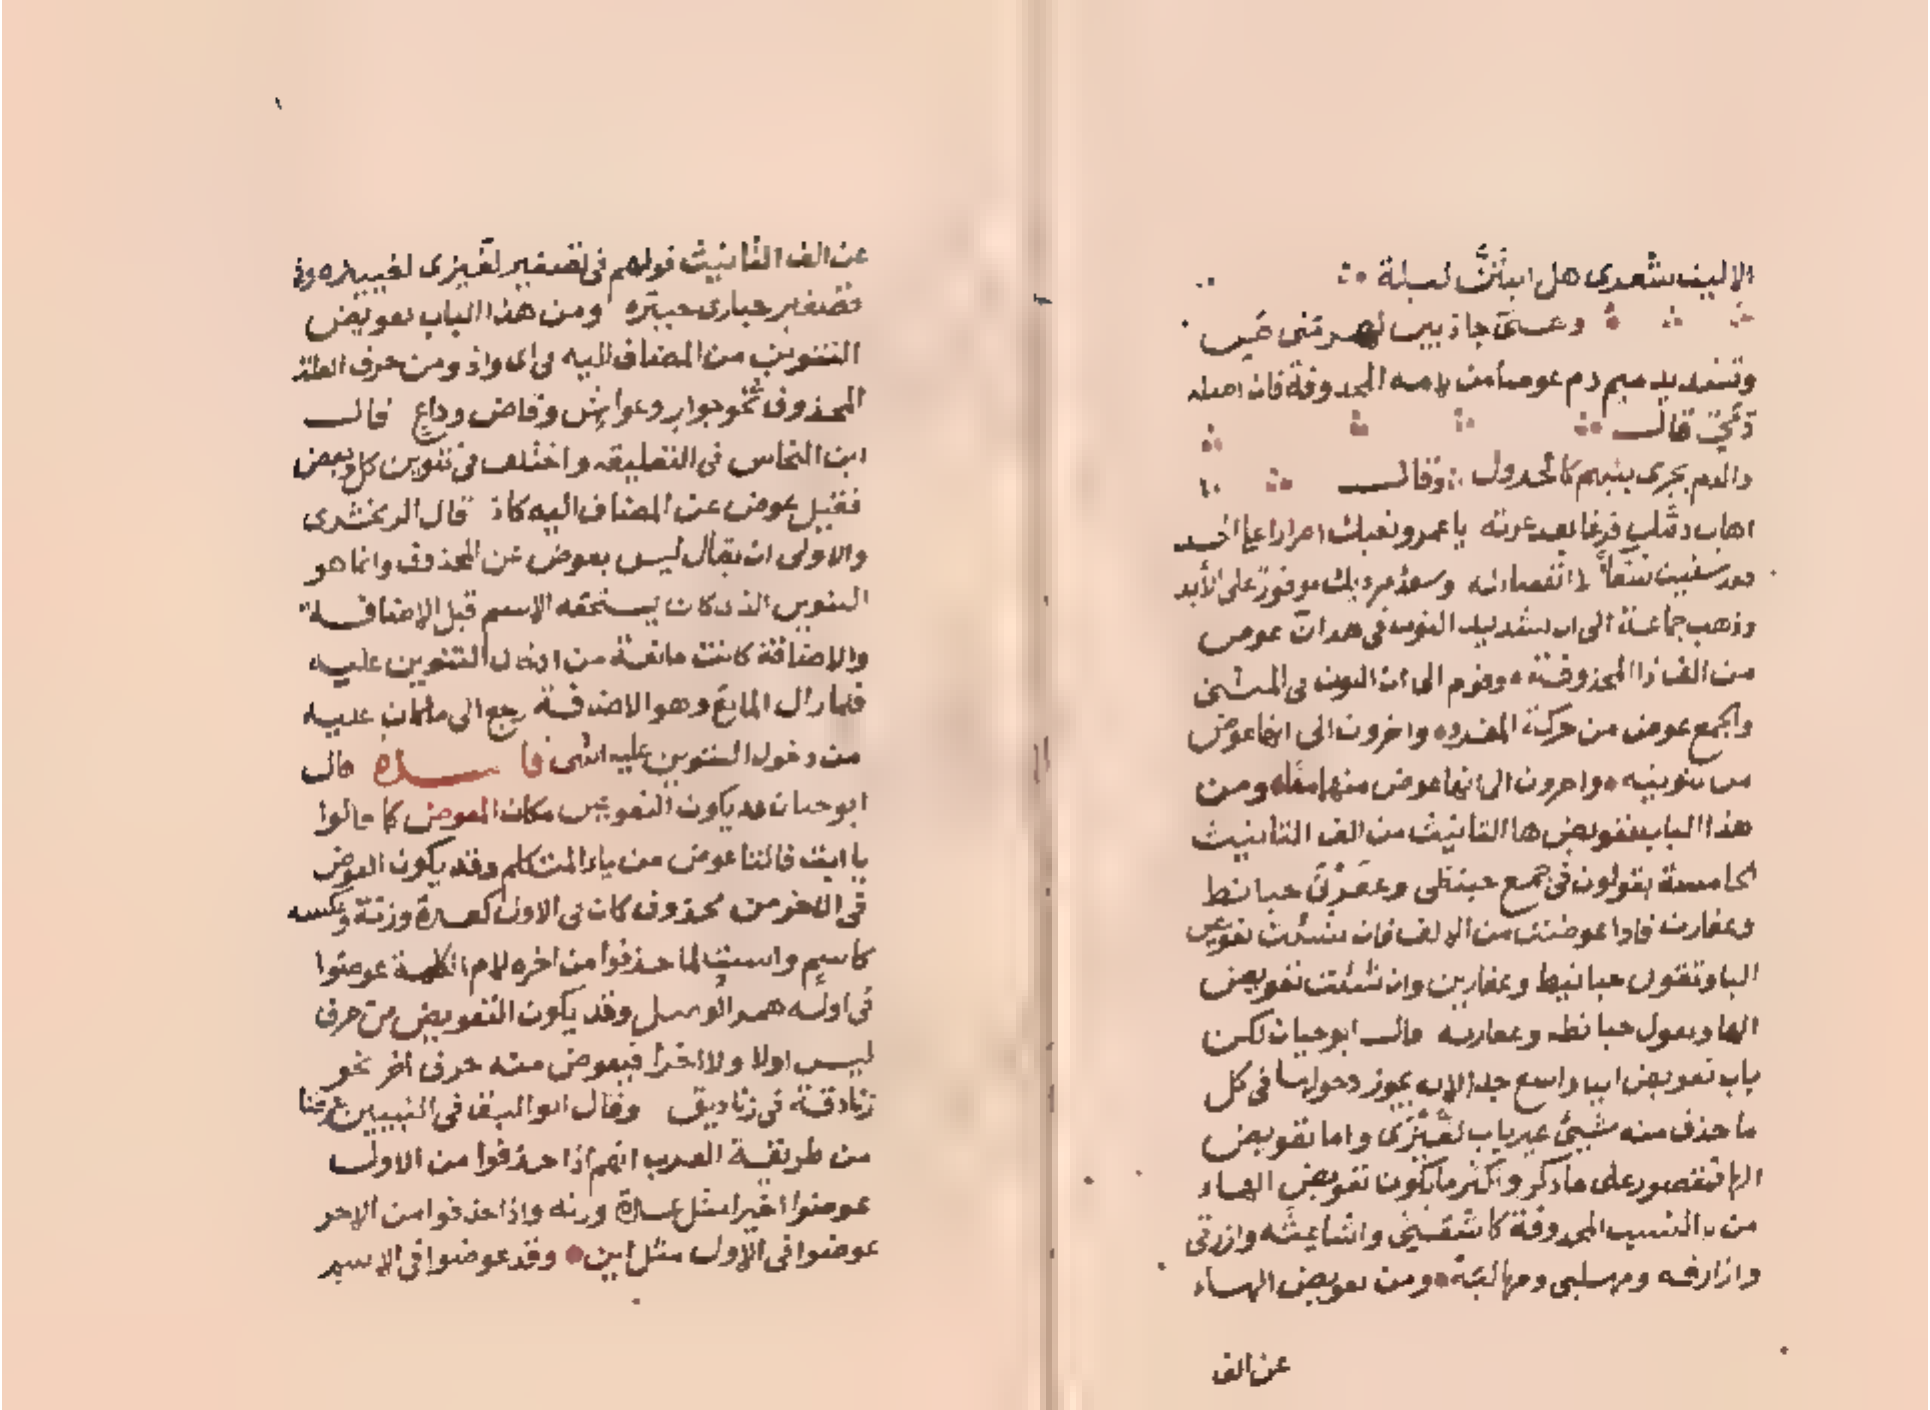 الا ليت شعرى هل ابيتن ليلة
وعنى جاذبين لهم
وتشديد ميم دم عوضا من لامه المحذوفة فان اصله
دمى قال
والدم يجرى بينهم كالجدول وقال
اهان دمك فرغا بعد عزته يا عمرو نعيك اصرارا على الحسد
فقد سفيت شقاء لا انقضاء له وسعد مرديك موفور على الأبد
وذهب جماعة الى ان تشديد النون فى هذان عوض
من الف ذا المحذوفة وقوم الى ان النون فى المثنى
والجمع عوض من حركة المفرد واخرون الى انها عوض
من تنوينه واخرون الى انها عوض منهما معا ومن
هذا الباب تعويض ها التأنيث من الف التأنيث
الخامسة يقولون فى جمع حبنطى وعفرنى حبانط
وعفارن فاذا عوضت من الالف فان شئت تعويض
اليا وتقول حبانيط وعفارين وان شئت تعويض
الها وتقول حبانطه وعفارنه قال ابو حيان لكن
باب تعويض اليا واسع جدا لانه يجوز دخولها فى كل
ما حذف منه شيئ غير باب لغيزى واما تعويض
الها فمقصور على ما ذكر واكثر ما يكون تعويض الهاء
من يا النسب المحذوفة كاشعثى واشاعثه وازرقى
وازارقه ومهلبى ومهالبة ومن تعويض الهاء
عن الف
عن الف التأنيث قولهم فى تصغير لغيزى لغيغيزه وفى
تصغير حبارى حبيره ومن هذا الباب تعويض
التنوين من المضاف اليه فى اى واذ ومن حرف العلة
المحذوف نحو جوار وغواش وقاض وداع قال
ابن النحاس فى التعليقه واختلف فى تنوين كل وبعض
فقيل عوض عن المضاف اليه كاذ قال الزمخشرى
والاولى ان يقال ليس بعوض عن المحذوف وانما هو
التنوين الذى كان يستحقه الاسم قبل الاضافة
والاضافة كانت مانعة من ادخال التنوين عليه
فلما زال المانع وهو الاضافة رجع الى ما كان عليه
من دخول التنوين عليه انتهى فائدة قال
ابو حيان قد يكون التعويض مكان المعوض كما قالوا
يا ابت فالتا عوض من ياء المتكلم وقد يكون العوض
فى الاخر من محذوف كان فى الاول كعدة وزنة وعكسه
كاسم واست لما حذفوا من اخره لام الكلمة عوضوا
فى اوله همز الوصل وقد يكون التعويض من حرف
ليس اولا ولا اخرا فيعوض منه حرف اخر نحو
زنادقة فى زناديق وقال ابو البقا فى التبيين عرفنا
من طريقة العرب انهم اذا حذفوا من الاول
عوضوا اخيرا مثل عدة وزنه واذا حذفوا من الاخر
عوضوا فى الاول مثل ابن وقد عوضوا فى الاسم